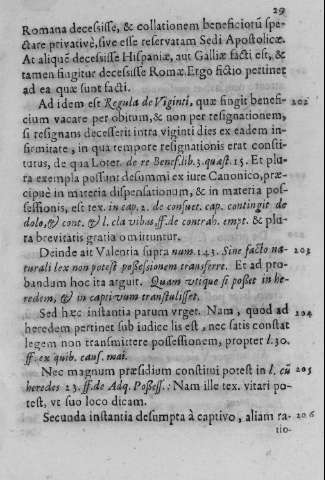 29
Romana decessisse, & collationem beneficiorũ spe-
ctare privativè, sive esse reservatam Sedi Apostolicæ.
At aliquẽ decessisse Hispaniæ, aut Galliæ facti est, &
tamen fingitur decessisse Romæ. Ergo fictio pertinet
ad ea quæ sunt facti.
Ad idem est Regula de Viginti, quæ fingit benefi- 202
cium vacare per obitum, & non per resignationem,
si resignans decesserit intra viginti dies ex eadem in-
firmitate, in qua tempore resignationis erat consti-
tutus, de qua Loter. de re Benef. lib. 3. quæst. 15. Et plu-
ra exempla possunt desummi ex iure Canonico, præ-
cipuè in materia dispensationum, & in materia pos-
sessionis, est tex. in cap. 2. de consuet. cap. contingit de
dolo, & cont. & l. cla vibos, ff. de contrah. empt. & plu-
ra brevitatis gratia omittuntur.
Deinde ait Valentia supra num. 143. Sine facto na- 203
turali lex non potest possessionem transferre. Et ad pro-
bandum hoc ita arguit. Quam utique si posset in he-
redem, & in captivum transtulisset.
Sed hæc instantia parum vrget. Nam, quod ad 204
heredem pertinet sub iudice lis est, nec satis constat
legem non transmittere possessionem, propter l. 30.
ff. ex quib. caus. mai.
Nec magnum præsidium constitui potest in l. cũ 205
heredes 23. ff. de Adq. Possess.: Nam ille tex. vitari po-
test, vt suo loco dicam.
Secunda instantia desumpta à captivo, aliam ra- 206
tio-